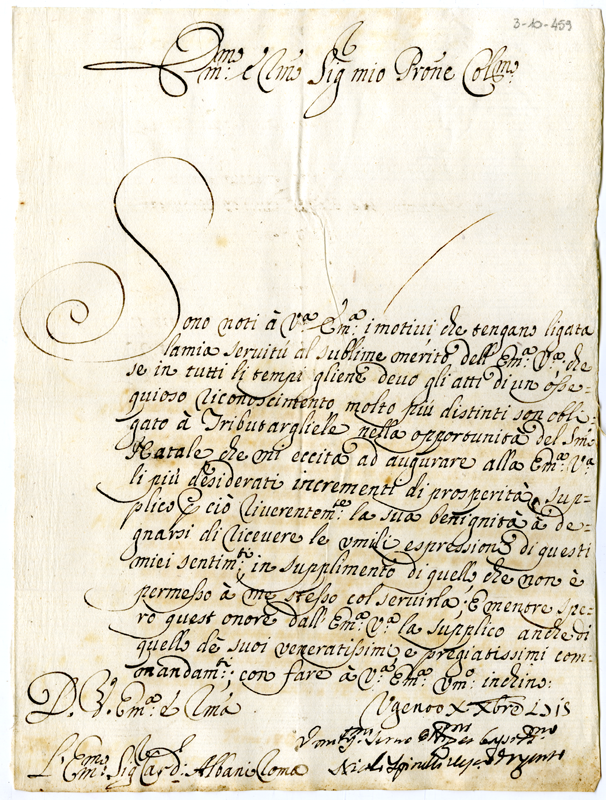 3-10-459
Em.mo e R.mo Sig mio Prone Col.mo
Sono noti à V.a Em.a i motivi che tengano ligata
la mia servitù al sublime mérito dell' Em.a V.a che
se in tutti li tempi gliene devo gli atti di un osse=
quioso riconoscimento, molto più distinti son obli=
gato à Tributargliele nella opportunità del S.mo
Natale che mi eccita ad augurare alla Em.a V.a
li più desiderati incrementi di prosperità, sup=
plico ciò riverentem.te la sua benignità à de=
gnarsi di ricevere le umili espressioni di questi
miei sentim.ti in supplimento di quello che non è
permesso à me stesso col servirla, E mentre spe=
ro quest onore dall' Em.a V.a la supplico anche di
quello de suoi veneratissimi, e pregiatissimi com=
mandam.ti, con fare à V.a Em.a um.o inchino:
D. V. Em.a è R.ma
Ugento X
L' Em.mo Sig Card: Albani Roma